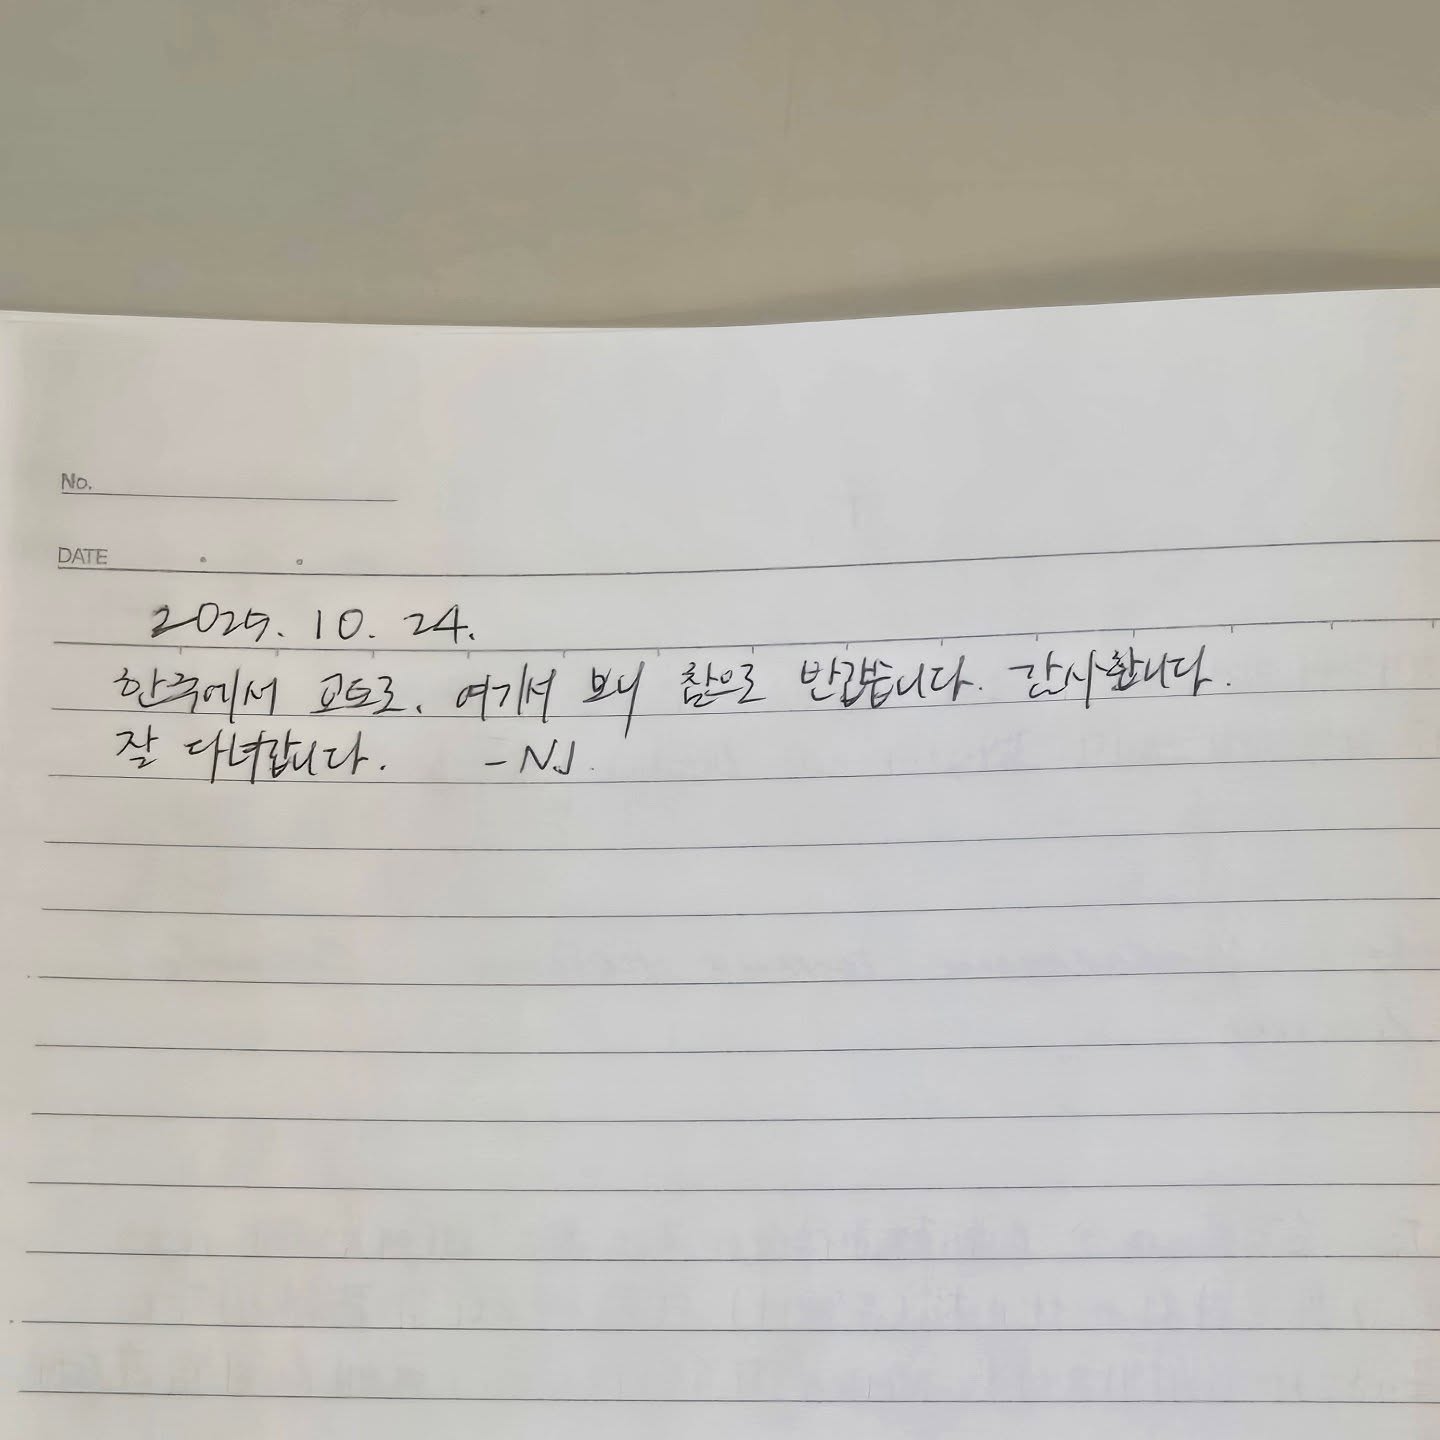 No.
DATE . .
2025. 10. 24.
한국에서 교토로. 여기서 보니 참으로 반갑습니다. 감사합니다.
잘 다녀갑니다. - NJ.